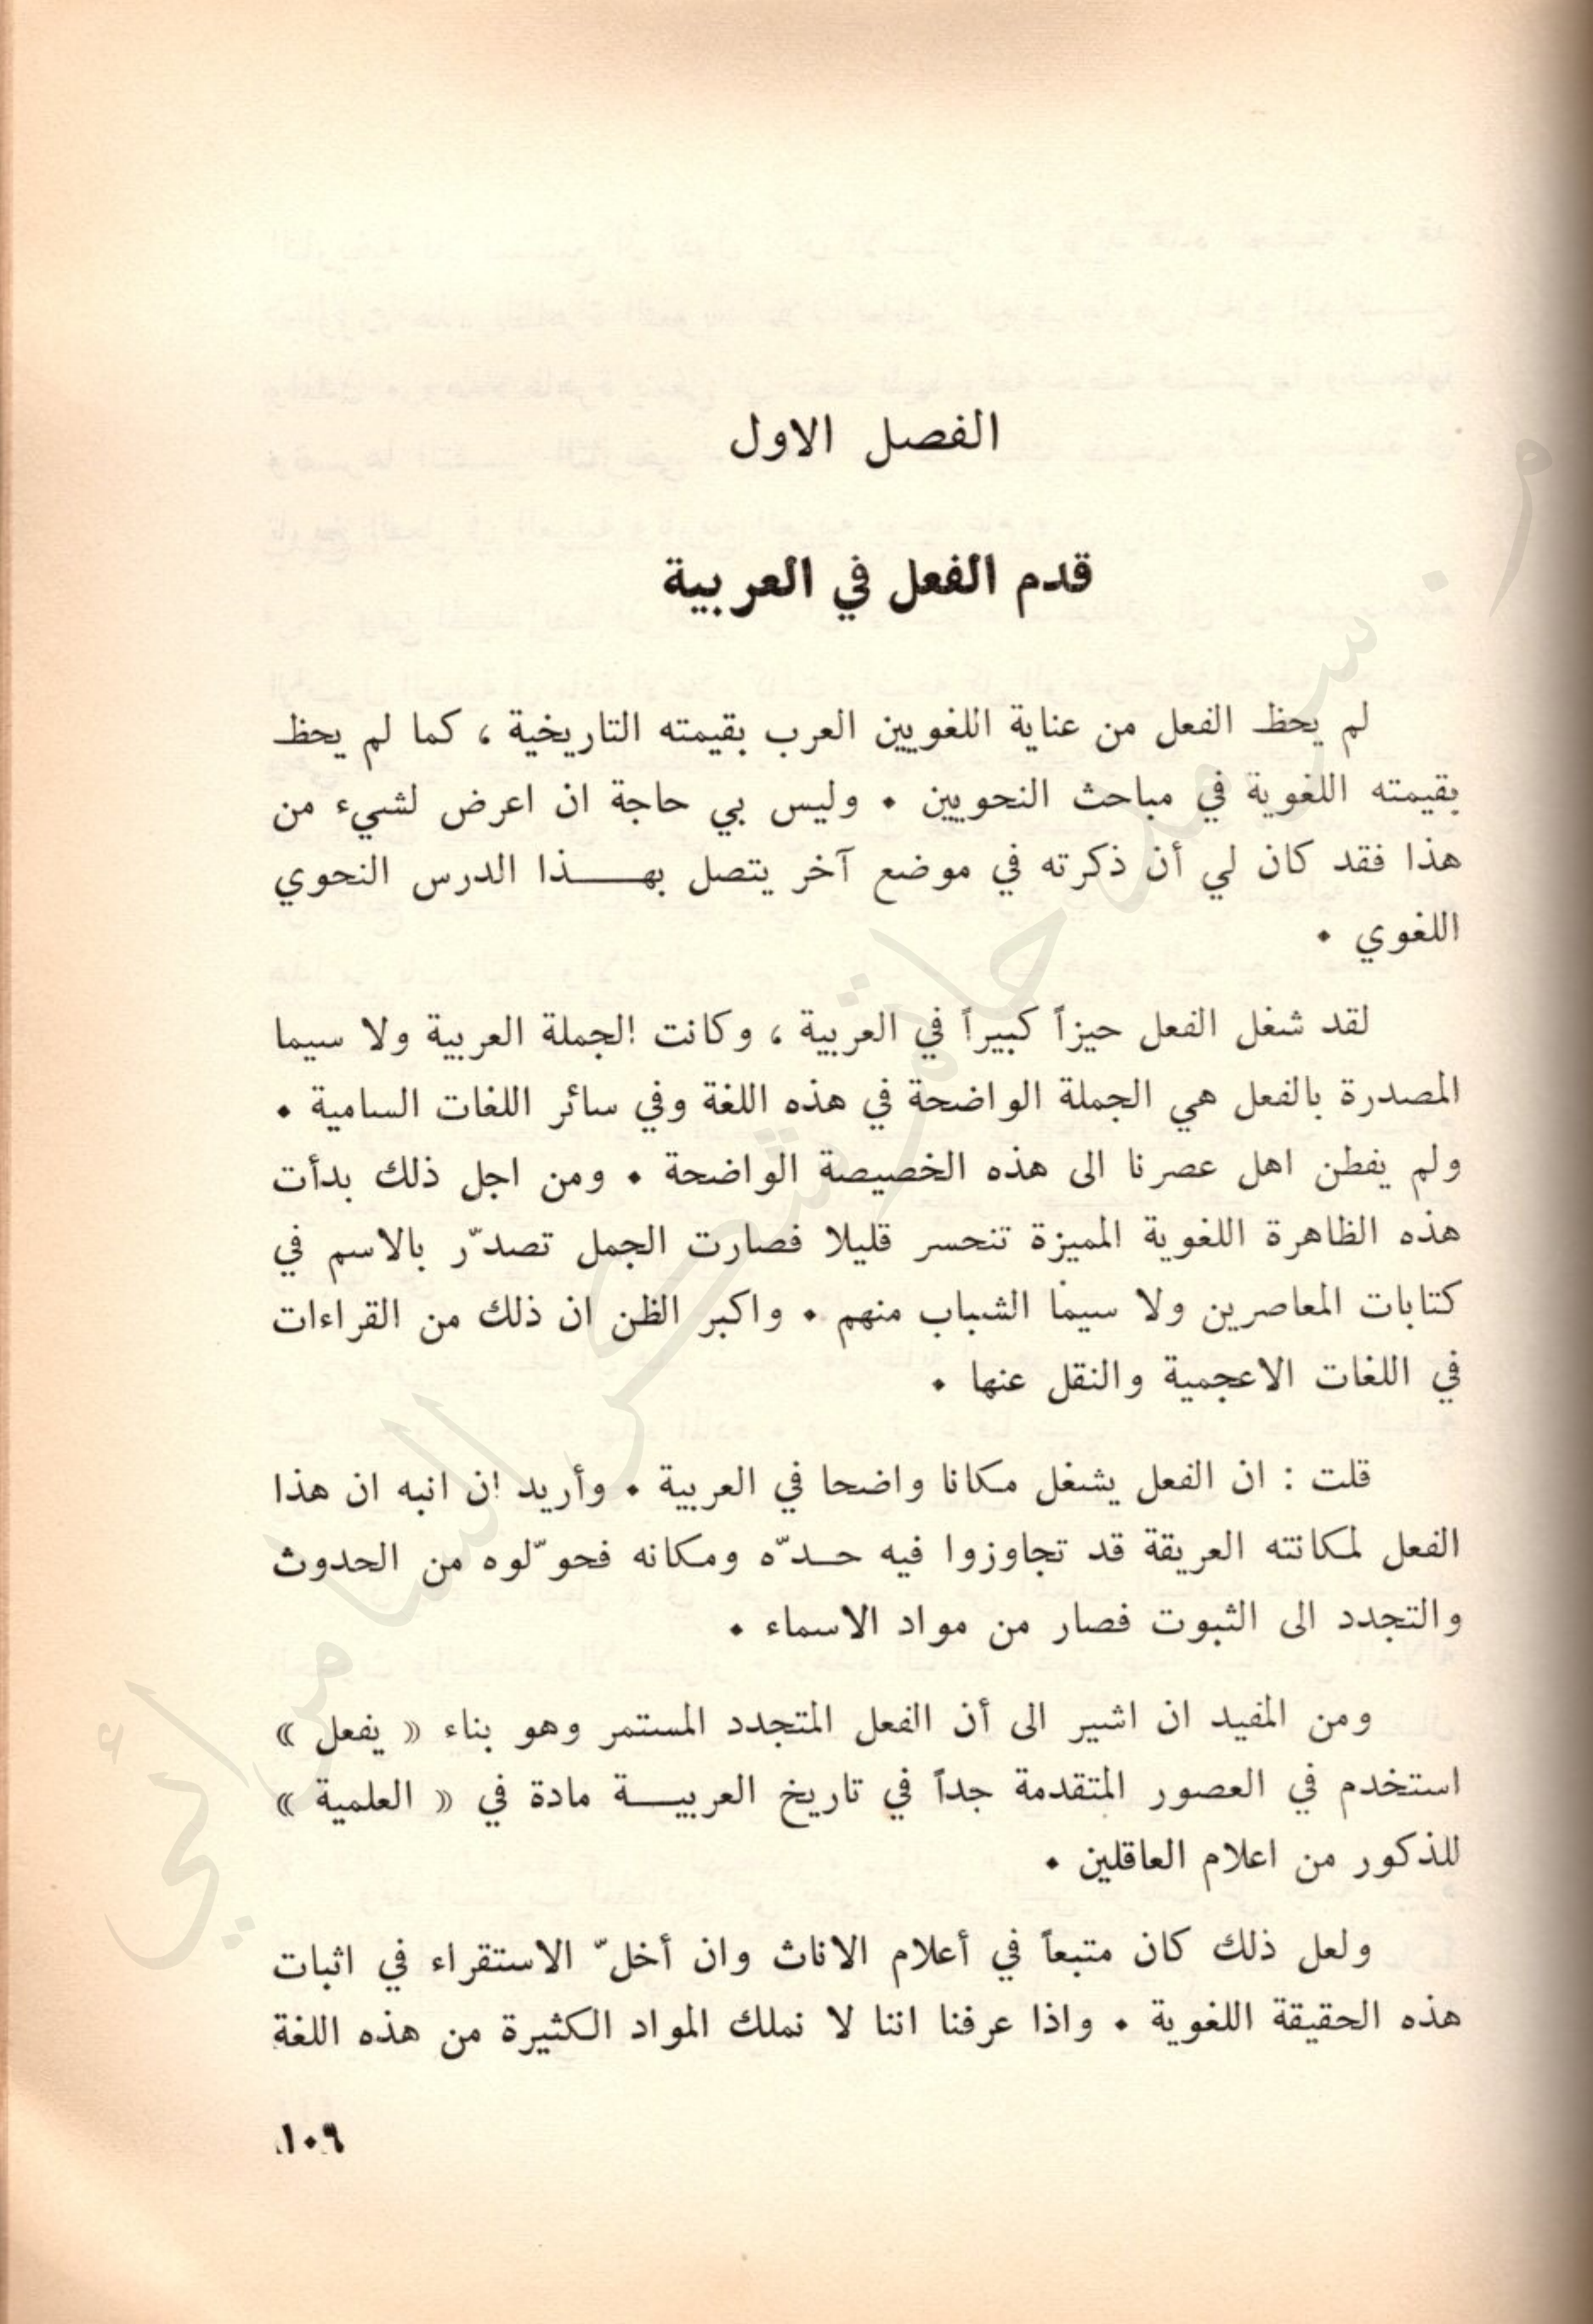 الفصل الاول
قدم الفعل في العربية
لم يحظ الفعل من عناية اللغويين العرب بقيمته التاريخية ، كما لم يحظ
بقيمته اللغوية في مباحث النحويين • وليس بي حاجة ان اعرض لشيء من
هذا فقد كان لي أن ذكرته في موضع آخر يتصل بهـــذا الدرس النحوي
اللغوي •
لقد شغل الفعل حيزاً كبيراً في العربية ، وكانت الجملة العربية ولا سيما
المصدرة بالفعل هي الجملة الواضحة في هذه اللغة وفي سائر اللغات السامية •
ولم يفطن اهل عصرنا الى هذه الخصيصة الواضحة • ومن اجل ذلك بدأت
هذه الظاهرة اللغوية المميزة تنحسر قليلا فصارت الجمل تصدّر بالاسم في
كتابات المعاصرين ولا سيما الشباب منهم • واكبر الظن ان ذلك من القراءات
في اللغات الاعجمية والنقل عنها •
قلت : ان الفعل يشغل مكانا واضحا في العربية • وأريد ان انبه ان هذا
الفعل لمكانته العريقة قد تجاوزوا فيه حـدّه ومكانه فحوّلوه من الحدوث
والتجدد الى الثبوت فصار من مواد الاسماء •
ومن المفيد ان اشير الى أن الفعل المتجدد المستمر وهو بناء « يفعل »
استخدم في العصور المتقدمة جداً في تاريخ العربيـــة مادة في « العلمية »
للذكور من اعلام العاقلين •
ولعل ذلك كان متبعاً في أعلام الاناث وان أخلّ الاستقراء في اثبات
هذه الحقيقة اللغوية • واذا عرفنا اننا لا نملك المواد الكثيرة من هذه اللغة
١٠٩